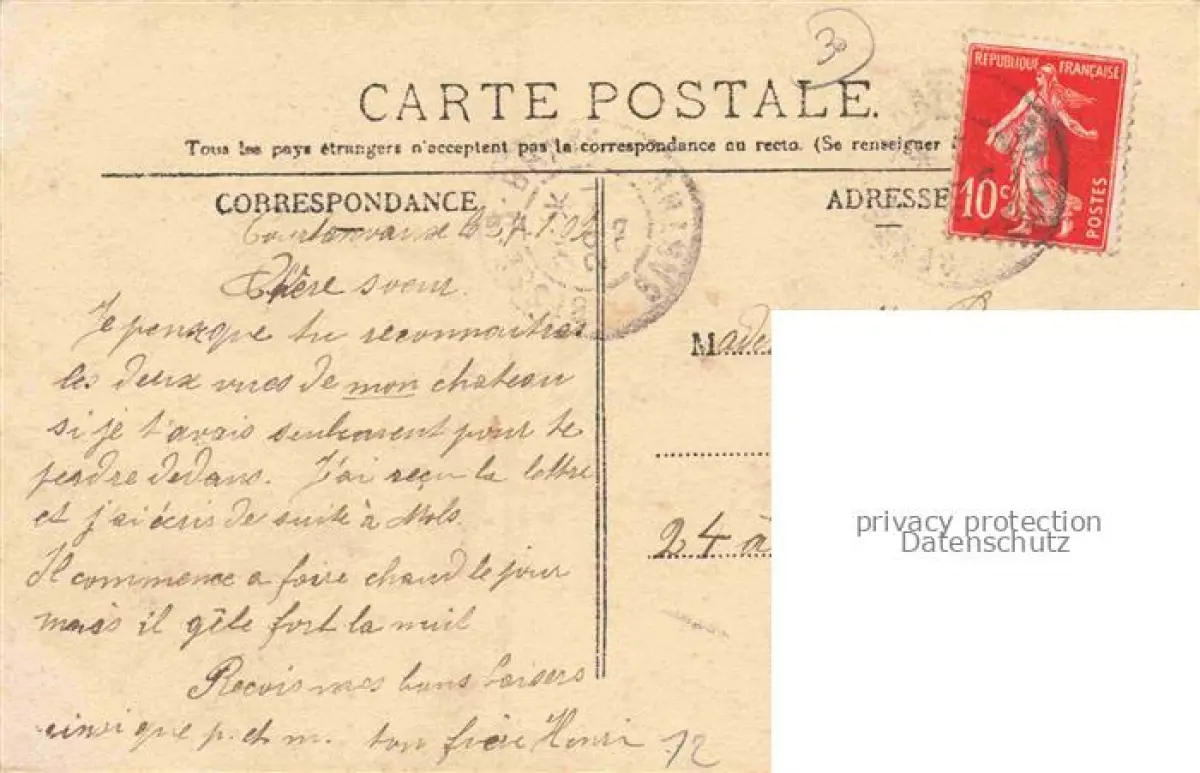 30
CARTE POSTALE.
Tous les pays étrangers n'acceptent pas la correspondance au recto. (Se renseigner
REPUBLIQUE FRANÇAISE
10c
POSTES
CORRESPONDANCE
ADRESSE
SARTHE
Chère soeur.
Je pense que tu reconnaitras
les deux vues de mon chateau
si je t'avais seulement pour te
perdre dedans. J'ai reçu la lettre
et j'ai écris de suite à Mols
Il commence a faire chaud le jour
mais il gêle fort la nuit
Recois mes bons baisers
ainsi que p. et m. ton frère Henri
12
Made
24 à
privacy protection
Datenschutz